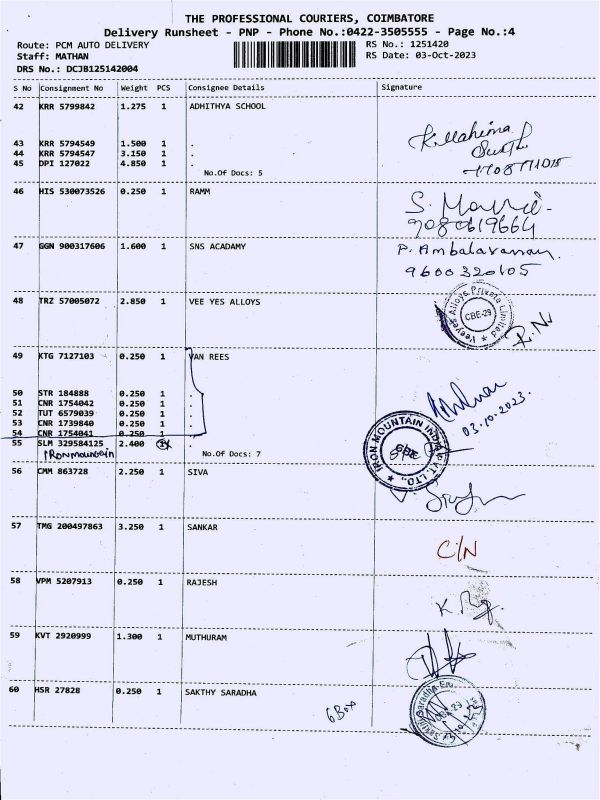 THE PROFESSIONAL COURIERS, COIMBATORE
Delivery Runsheet - PNP - Phone No.:0422-3505555 - Page No.:4
Route: PCM AUTO DELIVERY RS No.: 1251420
Staff: MATHAN RS Date: 03-Oct-2023
DRS No.: DCJB125142004
S No Consignment No Weight PCS Consignee Details Signature
42 KRR 5799842 1.275 1 ADHITHYA SCHOOL
43 KRR 5794549 1.500 1 .
44 KRR 5794547 3.150 1 .
45 DPI 127022 4.850 1 .
No.Of Docs: 5
46 HIS 530073526 0.250 1 RAMM
9080619664
47 GGN 900317606 1.600 1 SNS ACADAMY
P. Ambalavanan
9600320105
48 TRZ 57005072 2.850 1 VEE YES ALLOYS
Veeyes Alloys Private Limited
CBE-29
49 KTG 7127103 0.250 1 VAN REES
50 STR 184888 0.250 1 .
51 CNR 1754042 0.250 1 .
52 TUT 6579039 0.250 1 .
53 CNR 1739840 0.250 1 .
54 CNR 1754041 0.250 1 .
03.10.2023.
55 SLM 329584125 2.400 1 .
IRON MOUNTAIN INDIA PVT. LTD.,
CBE
IRonmountain No.Of Docs: 7
56 CMM 863728 2.250 1 SIVA
57 TMG 200497863 3.250 1 SANKAR
C/N
58 VPM 5207913 0.250 1 RAJESH
59 KVT 2920999 1.300 1 MUTHURAM
60 HSR 27828 0.250 1 SAKTHY SARADHA
6 Box